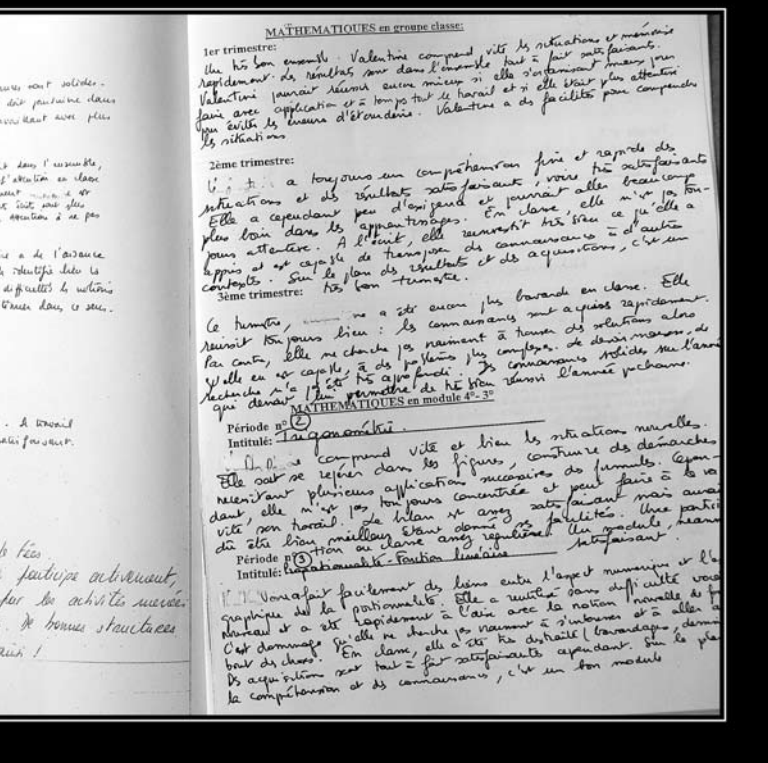 ures sont solides.
doit poursuivre dans
avec plus
dans l'ensemble,
d'attention en classe
est
sont plus
attention à ne pas
a de l'aisance
identifie bien
difficultés notions
dans ce sens.
. A travail
satisfaisant.
participe activement,
par les activités menées
. De bonnes structures
!
MATHEMATIQUES en groupe classe:
1er trimestre:
Un très bon ensemble. Valentine comprend vite les situations et mémorise
rapidement. Les résultats sont dans l'ensemble tout à fait satisfaisants.
Valentine pourrait réussir encore mieux si elle s'organisait mieux pour
faire avec application et à temps tout le travail et si elle était plus attentive
pour éviter les erreurs d'étourderie. Valentine a des facilités pour comprendre
les situations
2ème trimestre:
a toujours une compréhension fine et rapide des
situations et des résultats satisfaisants, voire très satisfaisants
Elle a cependant peu d'exigence et pourrait aller beaucoup
plus loin dans les apprentissages. En classe, elle n'est pas tou-
jours attentive. A l'écrit, elle réinvestit très bien ce qu'elle a
appris et est capable de transposer ds connaissances à d'autres
contextes. Sur le plan ds résultats et ds acquisitions, c'est un
très bon trimestre.
3ème trimestre:
Ce trimestre, ne a été encore plus bavarde en classe. Elle
réussit toujours bien : les connaissances sont acquises rapidement.
Par contre, elle ne cherche pas vraiment à trouver ds solutions alors
qu'elle en est capable, à ds problèmes plus complexes. Le devoir maison, de
recherche n'a pas été très approfondi. Ds connaissances solides sur l'année
qui devrait lui permettre de très bien réussir l'année prochaine.
MATHEMATIQUES en module 4°- 3°
Période n° 2
Intitulé: Trigonométrie.
comprend vite et bien les situations nouvelles.
Elle sait se repérer dans les figures, construire des démarches
nécessitant plusieurs applications successives ds formules. Cepen-
dant elle n'est pas toujours concentrée et peut faire à la va
vite son travail. Le bilan est assez satisfaisant mais aurait
dû être bien meilleur étant donné ses facilités. Une partici
tion en classe assez régulière. Un module, néanm
satisfaisant.
Période n° 3
Intitulé: Proportionnalité - Fonction linéaire
fait facilement des liens entre l'aspect numérique et l'a
graphique de la proportionnalité. Elle a réutilisé sans difficulté
et a été rapidement à l'aise avec la notion nouvelle de f
C'est dommage qu'elle ne cherche pas vraiment à s'intéresser et à aller a
bout ds choses. En classe, elle a été très distraite (bavardages,
Ds acquisitions sont tout à fait satisfaisantes cependant. Sur le pla
la compréhension et ds connaissances, c'est un bon module